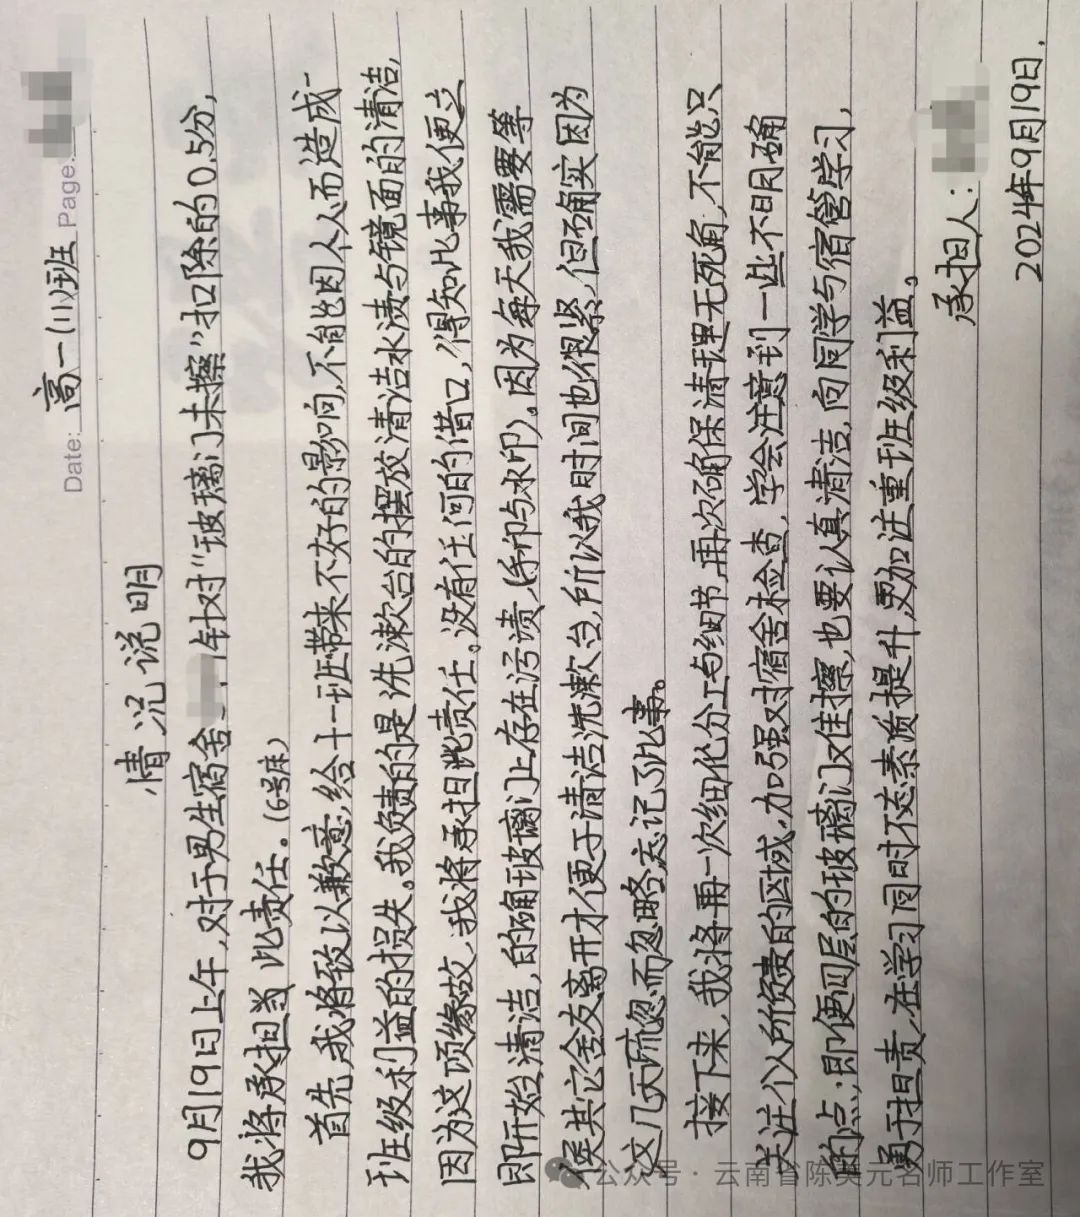 Date: 高一(11)班 Page.
情况说明
9月19日上午,对于男生宿舍 针对“玻璃门未擦”扣除的0.5分,
我将承担当此责任。(6号床)
首先,我将致以歉意,给十一班带来不好的影响,不能因个人而造成
班级利益的损失。我负责的是洗漱台的摆放清洁水渍与镜面的清洁,
因为这项缘故,我将承担此责任。没有任何的借口,得知此事我便立
即开始清洁,的确玻璃门上存在污渍,(手印与水印)。因为每天我需要等
候其它舍友离开才便于清洁洗漱台,所以我时间也很紧,但确实因为
这几天疏忽而忽略忘记了此事。
接下来,我将再一次细化分工与细节,再次确保清理无死角,不能只
关注个人所负责的区域,加强对宿舍检查,学会注意到一些不明确
的点;即便四层的玻璃门难擦,也要认真清洁,向同学与宿管学习,
勇于担责,在学习同时不忘素质提升,更加注重班级利益。
承担人:
2024年9月19日.
公众号·云南省陈美元名师工作室